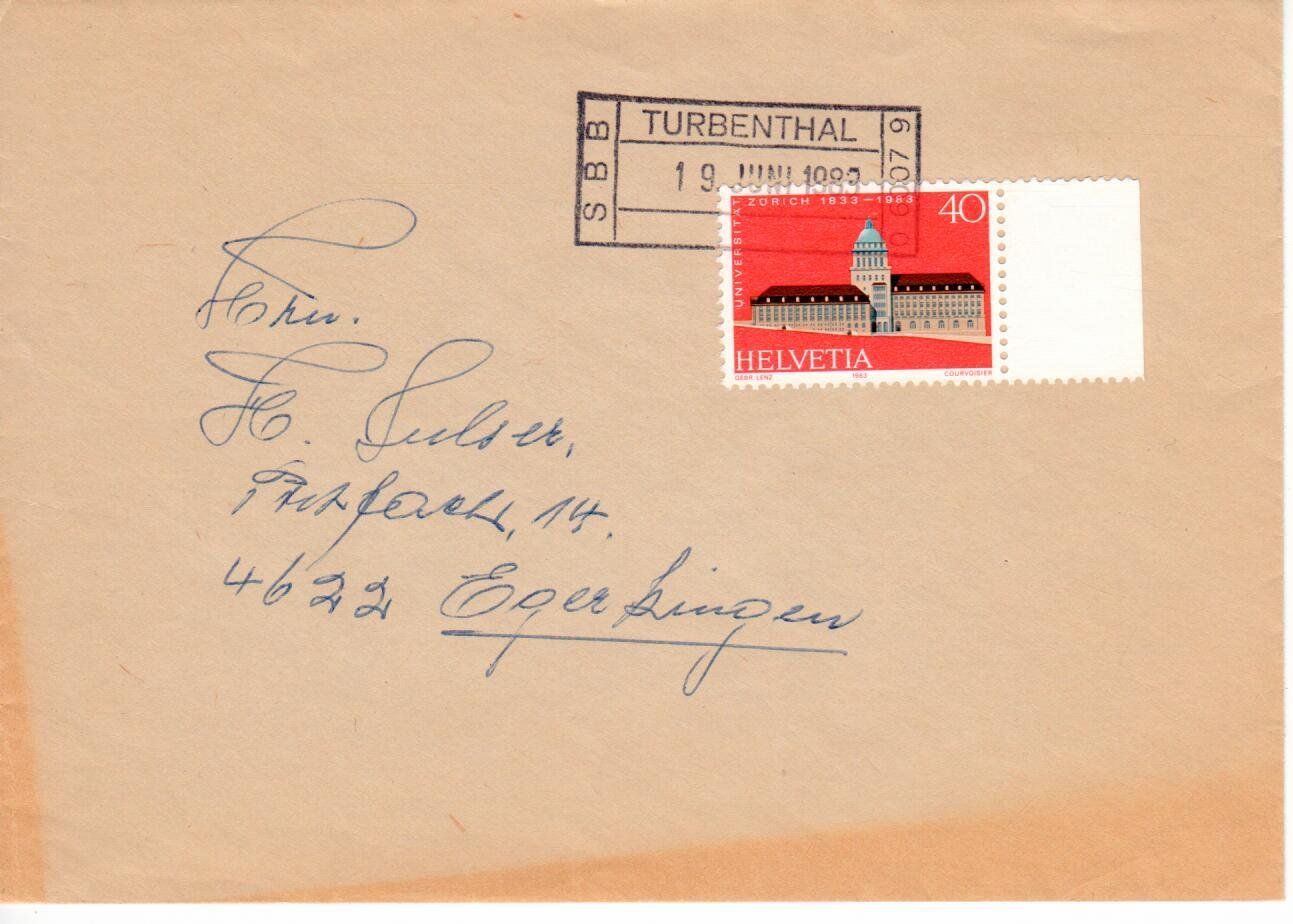 SBB
TURBENTHAL
19. JUNI 1983
06007 9
UNIVERSITÄT
ZÜRICH 1833–1983
40
HELVETIA
GEBR. LENZ 1983 COURVOISIER
Hrn.
H. Sulser,
Postfach, 14.
4622 Egerkingen